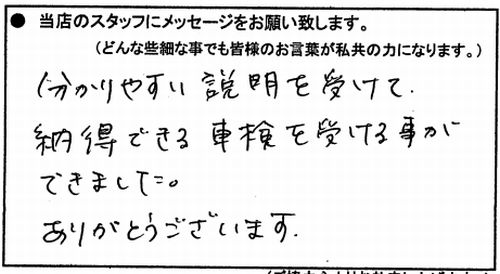 ● 当店のスタッフにメッセージをお願い致します。
(どんな些細な事でも皆様のお言葉が私共の力になります。)
分かりやすい説明を受けて.
納得できる車検を受ける事が
できました。
ありがとうございます.